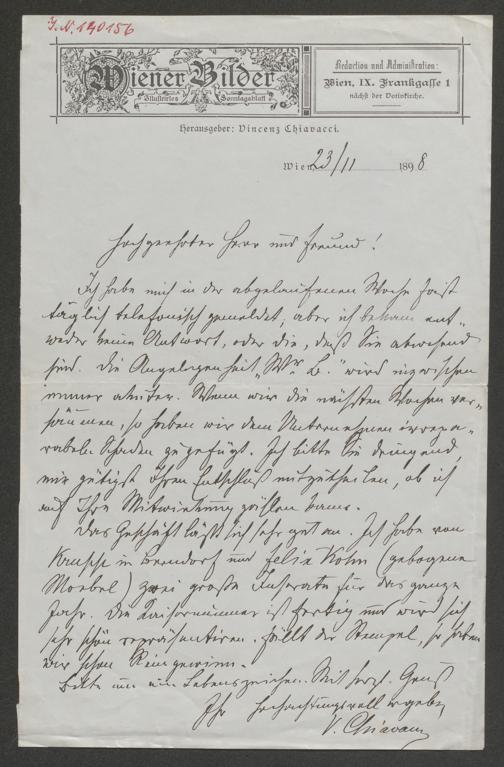 I. N. 140156
Wiener Bilder
Illustrirtes Sonntagsblatt
Redaction und Administration:
Wien, IX. Frankgasse 1
nächst der Votivkirche.
Herausgeber: Vincenz Chiavacci.
Wien 23/11 1898
Hochgeehrter Herr und Freund!
Ich habe mich in der abgelaufenen Woche fast
täglich telefonisch gemeldet, aber ich bekam ent-
weder keine Antwort, oder die, daß Sie abwesend
sind. Die Angelegenheit „Wr. B." wird inzwischen
immer akuter. Wenn wir die nächsten Wochen ver-
säumen, so haben wir dem Unternehmen irrepa-
rabeln Schaden zugefügt. Ich bitte Sie dringend,
mir gütigst Ihren Entschluß mitzutheilen, ob ich
auf Ihre Mitwirkung zählen kann.
Das Geschäft läßt sich sehr gut an. Ich habe von
Krupp in Berndorf und Felix Kohn (gebogene
Moebel) zwei große Inserate für das ganze
Jahr. Die Kaisernummer ist fertig und wird sich
sehr schön repräsentiren. Fällt der Stempel, so haben
wir schon Reingewinn.
Bitte um ein Lebenszeichen. Mit herzl. Gruß
Ihr hochachtungsvoll ergeb.
V. Chiavacci